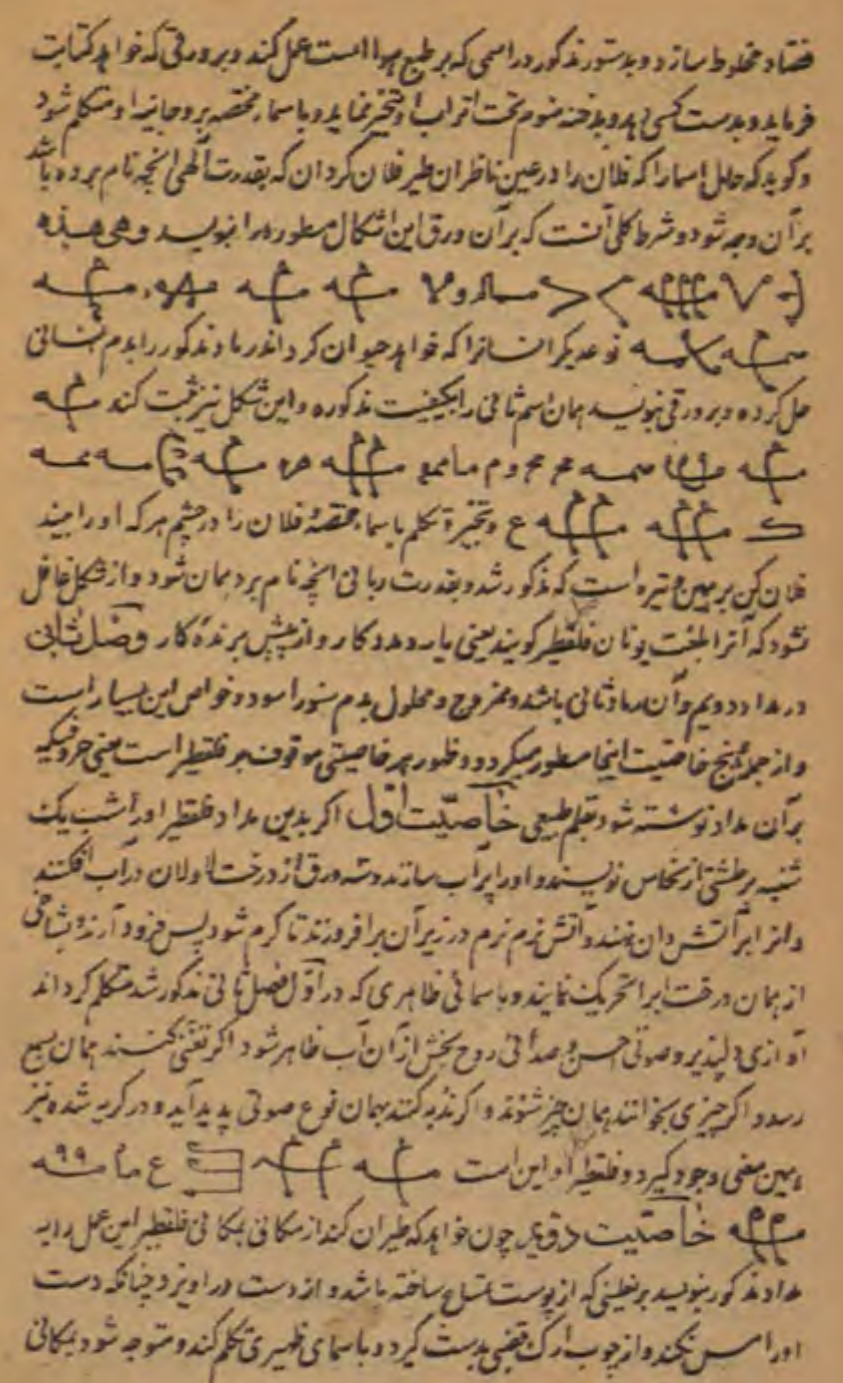 مخلوط سازد و بدستور مذکور در اسمی که بر طبع هوا است عمل کند و بر ورقی که خواهد کتابت
فرماید و بدست کسی دهد و بدخنه تحت اتراب او تبخیر نماید و باسماء مختصه بروحانیه او متکلم شود
و گوید که فلان را در عین ناظران طیر فلان گردان که بقدرت الهی آنچه نام برده باشد
بر آن وجه شود و شرط کلی آنست که بر آن ورق این اشکال مسطوره را بنویسد و هی هذه
نوع دیگر انسانرا که خواهد حیوان گرداند مذکور را بدم انسانی
حل کرده و بر ورقی بنویسد همان اسم ثانی را بکیفیت مذکوره و این شکل نیز ثبت کند
و تبخیر و تکلم باسماء مختصه فلان را در چشم هر که او را بیند
فلان کن بر همین وتیره است که مذکور شد و بقدرت ربانی آنچه نام برد همان شود و از شکل غافل
نشود که آنرا بلغت یونان فلقطیر گویند یعنی یار و مددکار و از پیش برنده کار وصل ثانی
در مداد دویم و آن ثانی باشد ممزوج و محلول بدم سنور اسود و خواص این بسیار است
و از جمله پنج خاصیت اینجا مسطور میگردد و ظهور هر خاصیتی موقوف بر فلقطیر است یعنی حروفیکه
بر آن مداد نوشته شود بقلم طبیعی خاصیت اول اگر بدین مداد فلقطیر او را شب یک
شنبه بر طشتی از نحاس نویسند و او را پر آب سازند و سه ورق از درخت در آب افکنند
و آنرا بر آتشدان نهند و آتش نرم نرم در زیر آن برافروزند تا گرم شود پس فرود آرند و بشاخی
از همان درخت تحریک نمایند و باسمائی ظاهری که در اول فصل ثانی مذکور شد متکلم گرداند
آوازی دلپذیر و صوتی حسن و صدائی روح بخش از آن آب ظاهر شود اگر تغنی کنند همان بسمع
رسد و اگر چیزی بخوانند همان چیز شنوند و اگر ندبه کنند همان نوع صوتی پدید آید و در گریه شده نیز
همین معنی وجود گیرد و فلقطیر او این است
خاصیت دویم چون خواهد که طیران کند از مکانی بمکانی فلقطیر این عمل را به
مداد مذکور بنویسد بر که از پوست تمساح ساخته باشد و از دست در آویزد چنانکه دست
او را مس نکند و از چوب قضیبی بدست گیرد و باسمای تکلم کند و متوجه شود بمکانی